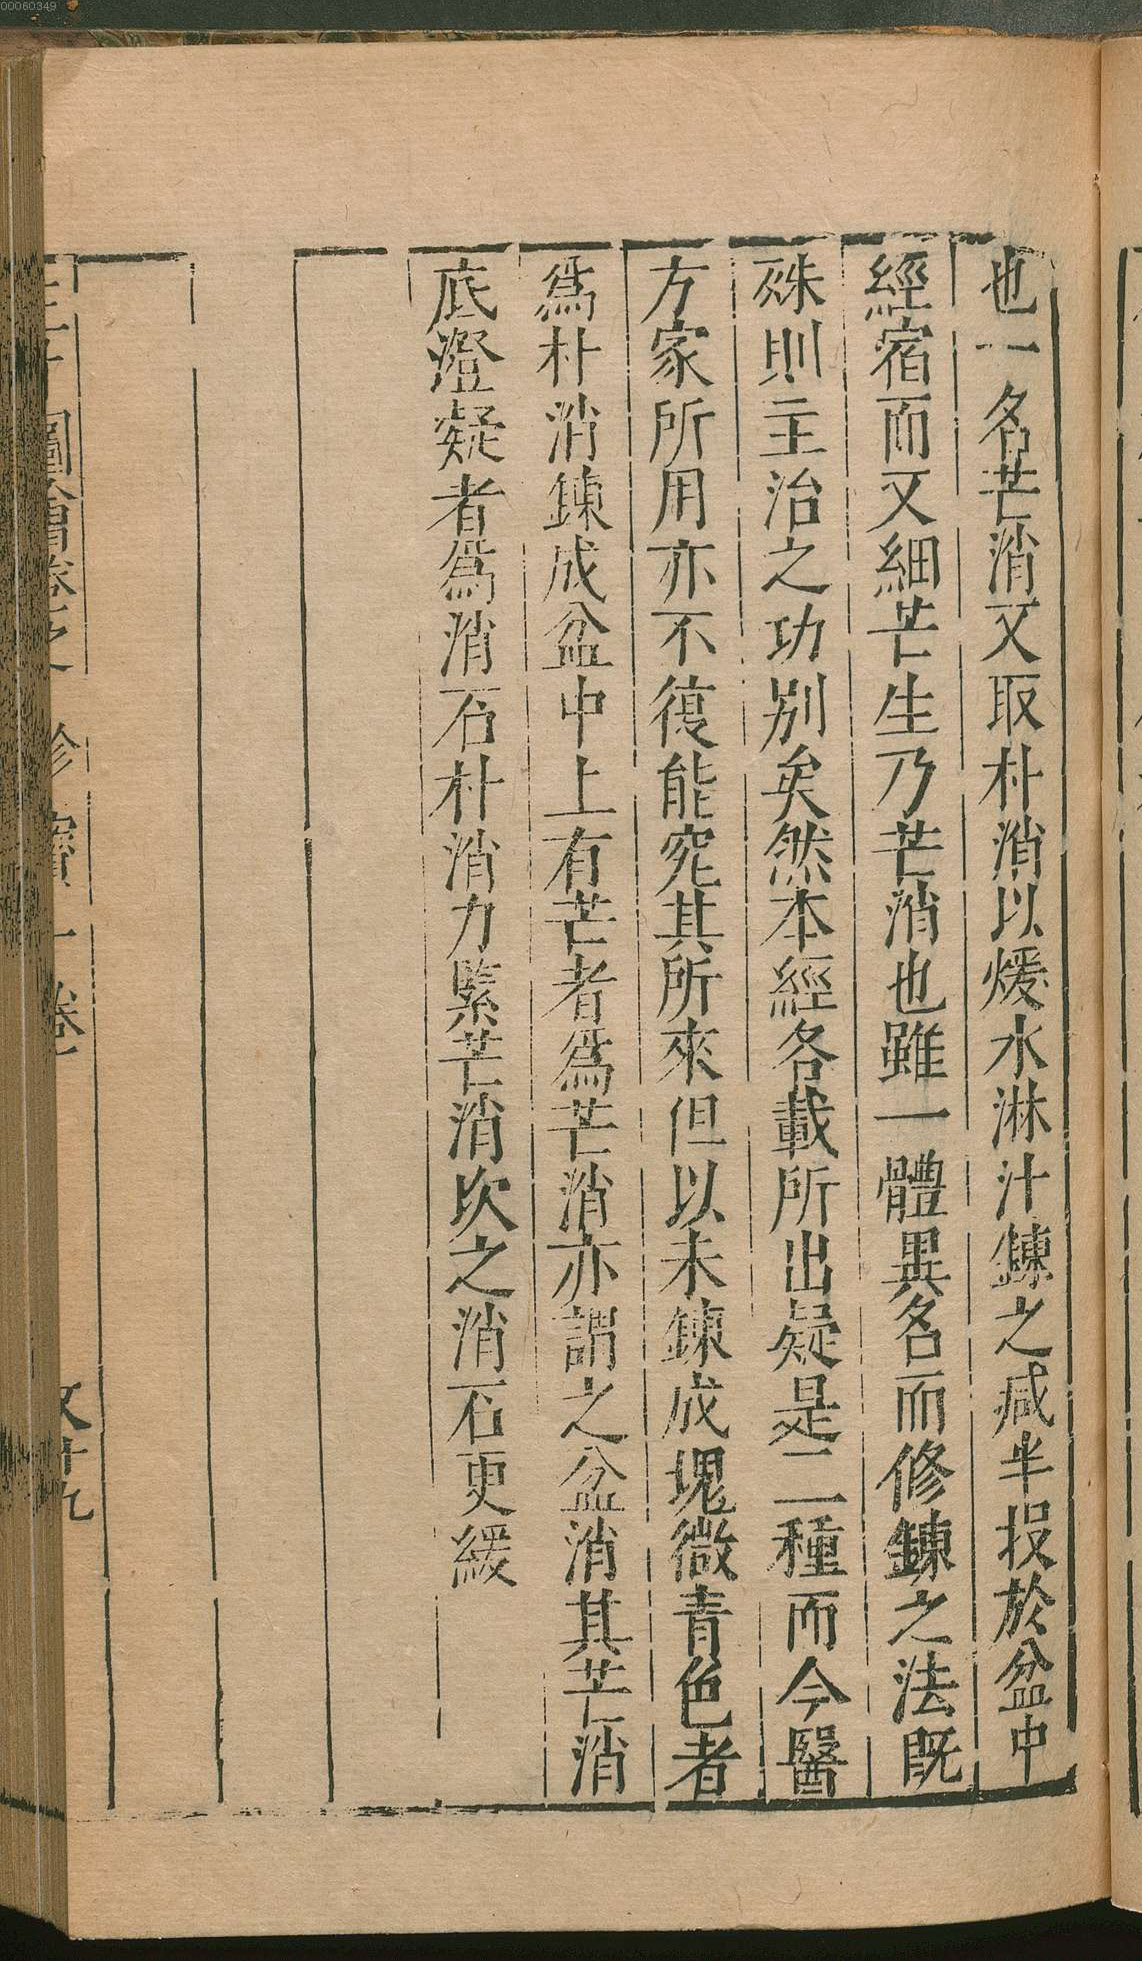 00060349
也一名芒消又取朴消以煖水淋汁鍊之減半投於盆中
經宿而又細芒生乃芒消也雖一體異名而修鍊之法既
殊則主治之功别矣然本經各載所出疑是二種而今醫
方家所用亦不復能究其所來但以未鍊成塊微青色者
爲朴消鍊成盆中上有芒者爲芒消亦謂之盆消其芒消
底澄凝者爲消石朴消力緊芒消次之消石更緩
三才圖會卷之 珍寶一卷 文廿九